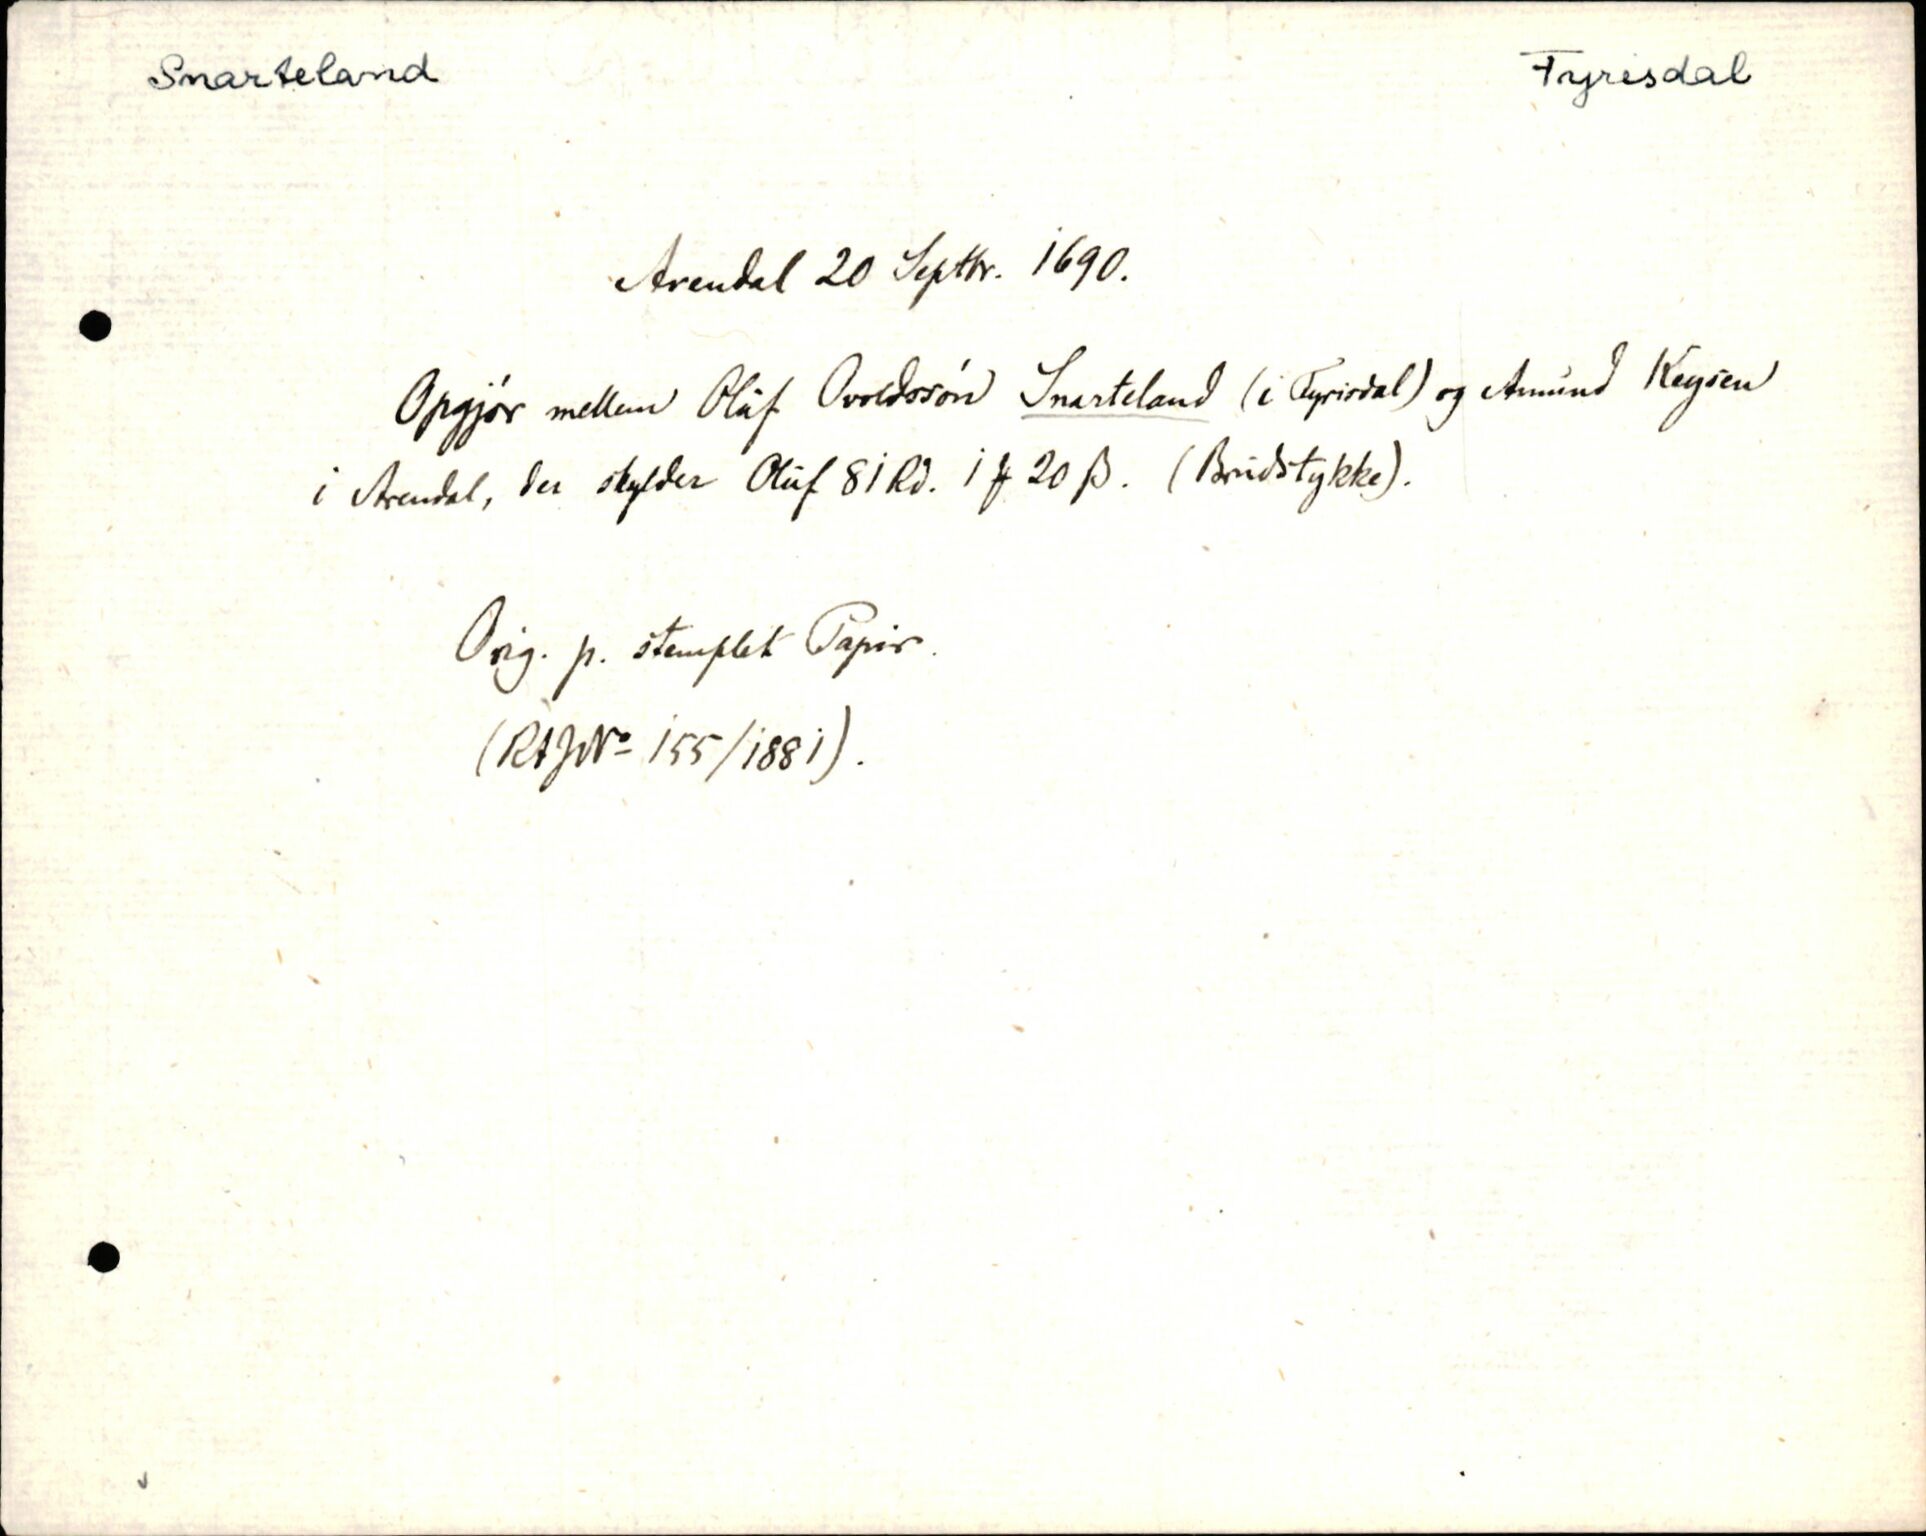 Snarteland
Fyrisdal
Arendal 20 Septbr. 1690.
Opgjør mellem Oluf Ovoldssøn Snarteland (i Fyrisdal) og Amund Keysen
i Arendal, der skylder Oluf 81 Rd. 1 20 ß. (Brudstykke).
Orig. p. stemplet Papir.
(RAJNo 155/1881).